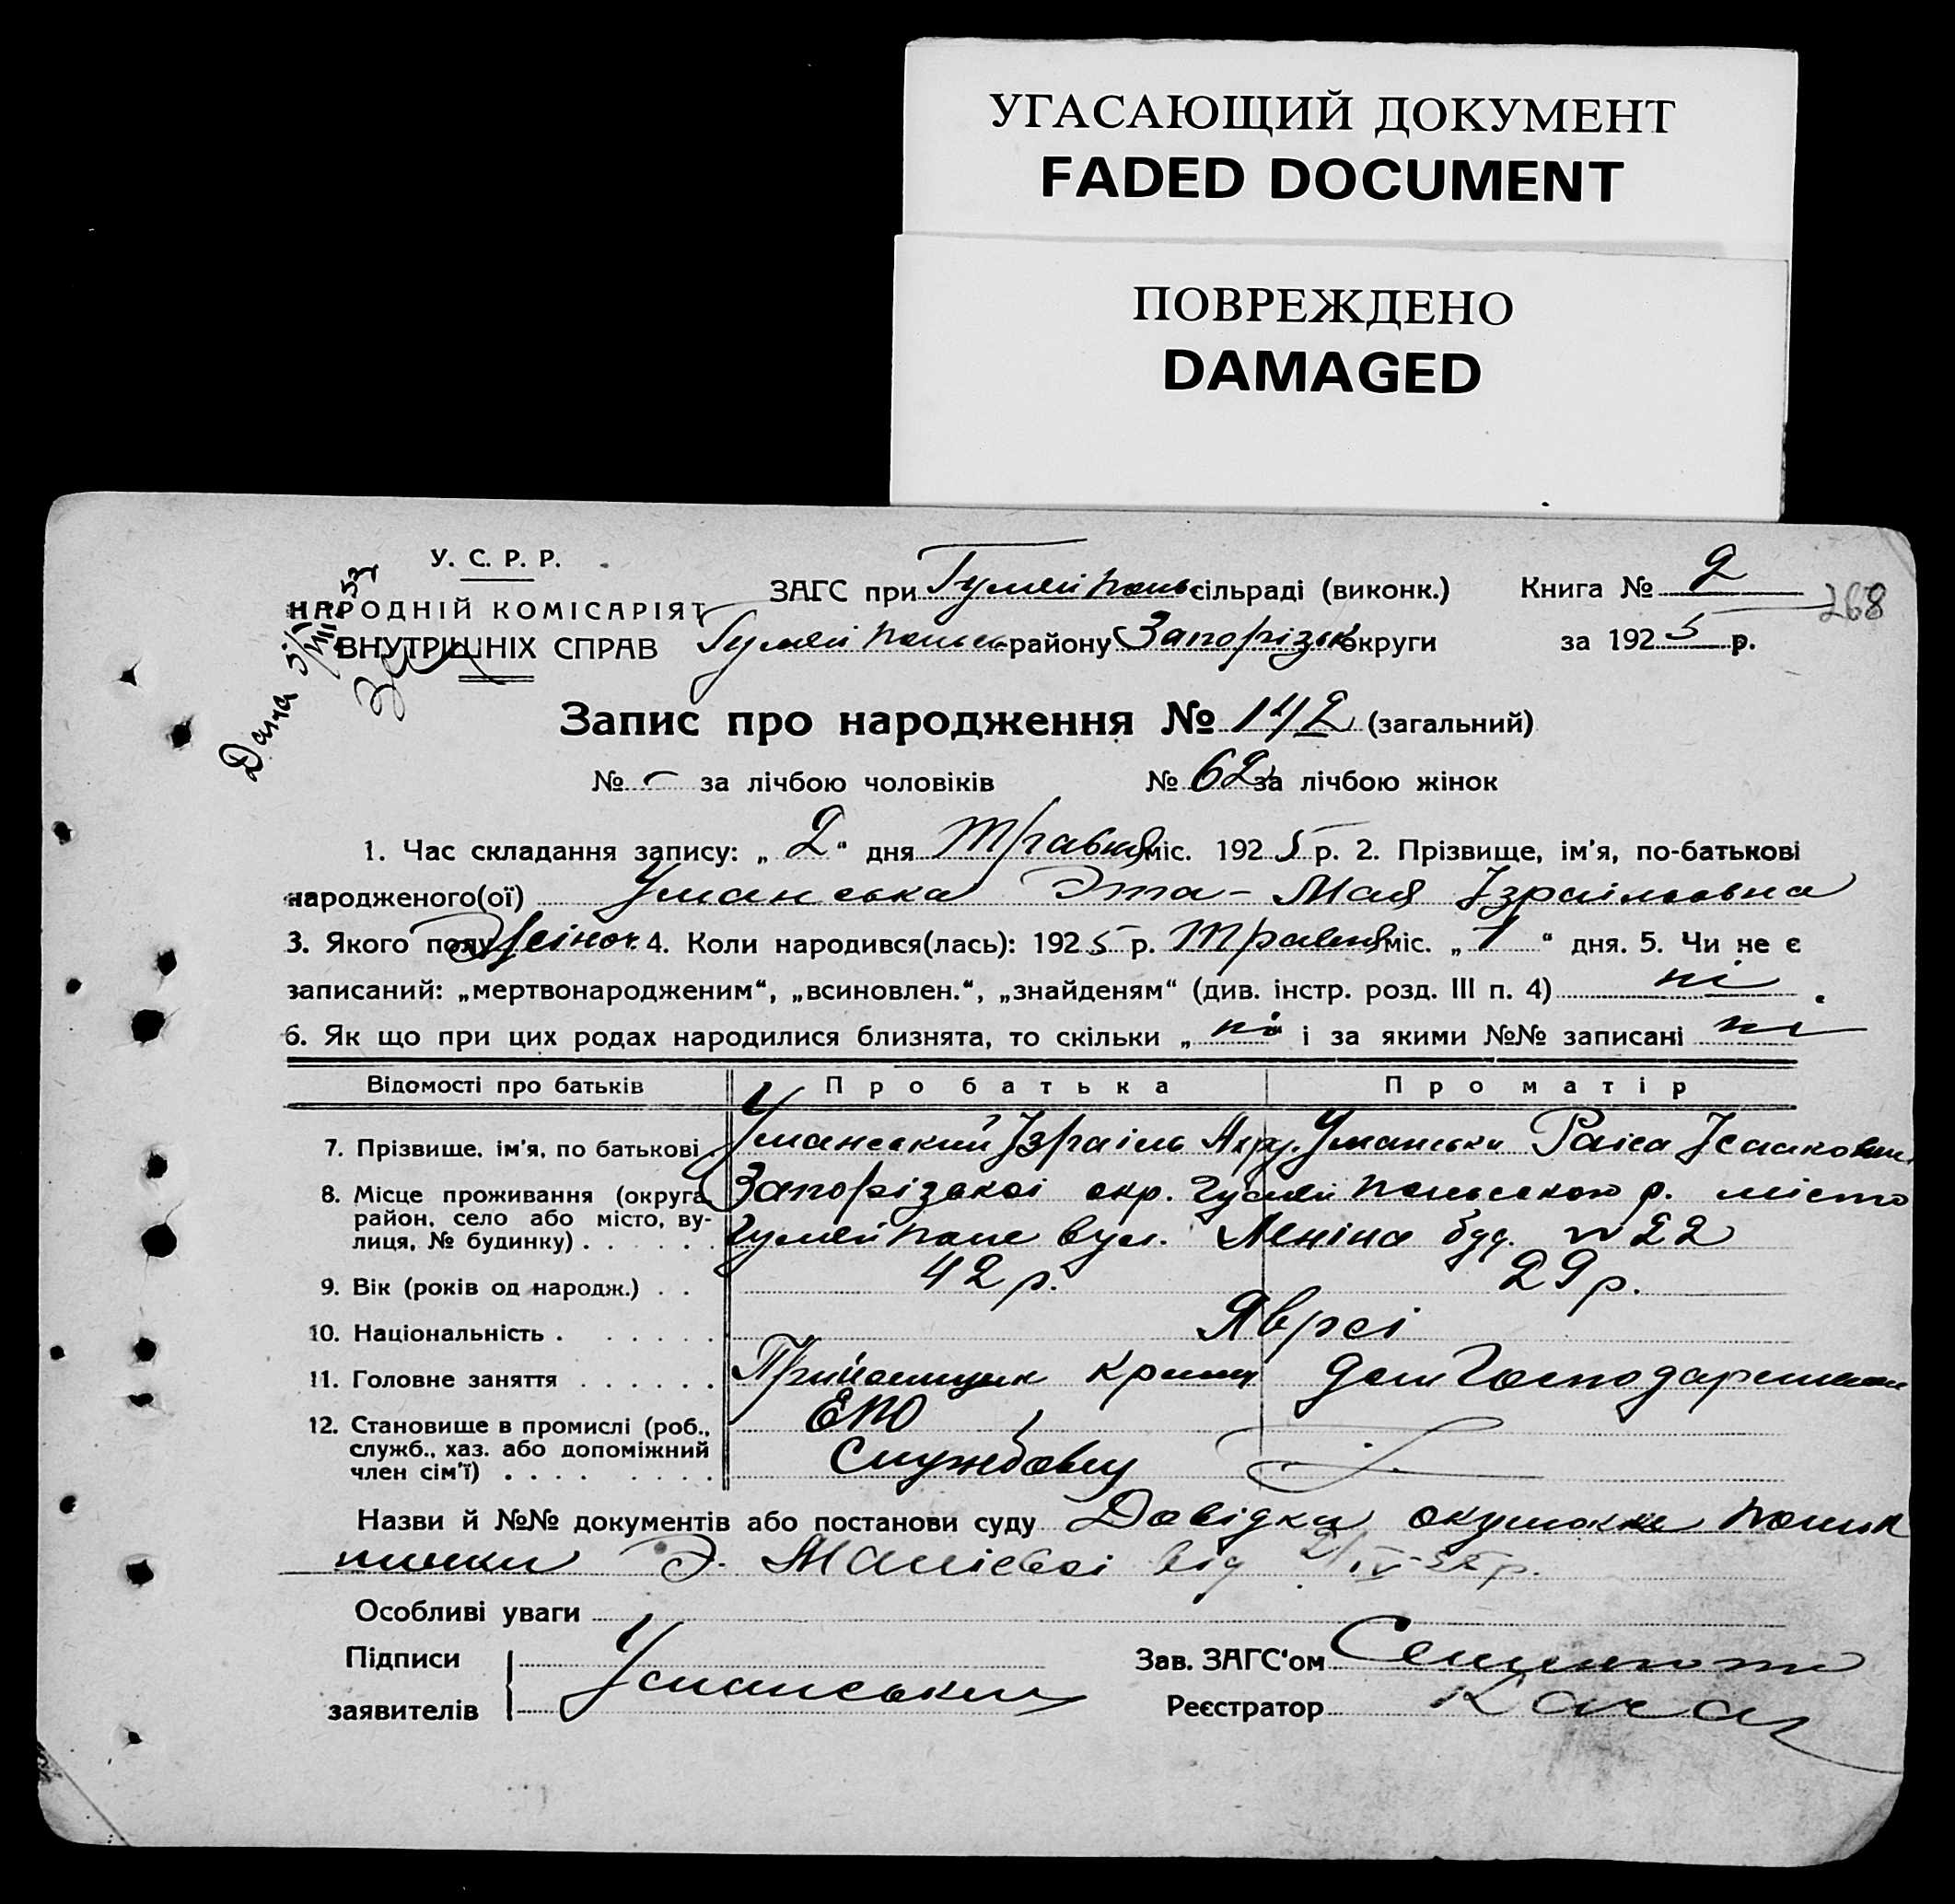 УГАСАЮЩИЙ ДОКУМЕНТ
FADED DOCUMENT
ПОВРЕЖДЕНО
DAMAGED
У. С. Р. Р.
НАРОДНІЙ КОМІСАРІЯТ
ВНУТРІШНІХ СПРАВ
ЗАГС при Гуляйпільсільраді (виконк.) Книга № 2
268
районy Запорізькокруги за 1925 р.
Дана
Запис про народження № 142 (загальний)
№ - за лічбою чоловіків № 62 за лічбою жінок
1. Час складання запису: „ 2 “ дня Травня міс. 1925 р. 2. Прізвище, ім'я, по-батькові
народженого(ої) Уманська Эта-Мая Ізраільовна
3. Якого полу Жіноч. 4. Коли народився(лась): 1925 р. Травня міс. „ 1 “ дня. 5. Чи не є
записаний: „мертвонародженим“, „всиновлен.“, „знайденям“ (див. інстр. розд. III п. 4) ні .
6. Як що при цих родах народилися близнята, то скільки „ ні і за якими №№ записані ні
Відомості про батьків Про батька Про матір
7. Прізвище, ім'я, по батькові . Уманський Ізраіль Уманська Раіса Ісааковн.
8. Місце проживання (округа, район, село або місто, вулиця, № будинку) . . . . . .
Запорізькоі окр. р. місто
вул. Леніна буд. № 22
9. Вік (років од народж.) . . 42 р. 29 р.
10. Національність . . . . . . Яврєі
11. Головне заняття . . . . . . Прийомщик дом Господарка
12. Становище в промислі (роб., служб., хаз. або допоміжний член сім'ї) . . . . . . .
ЕПО
Службовец
Назви й №№ документів або постанови суду Довідка акушорки
Э. від
Особливі уваги
Підписи
заявителів
Уманський
Зав. ЗАГС'ом
Реєстратор